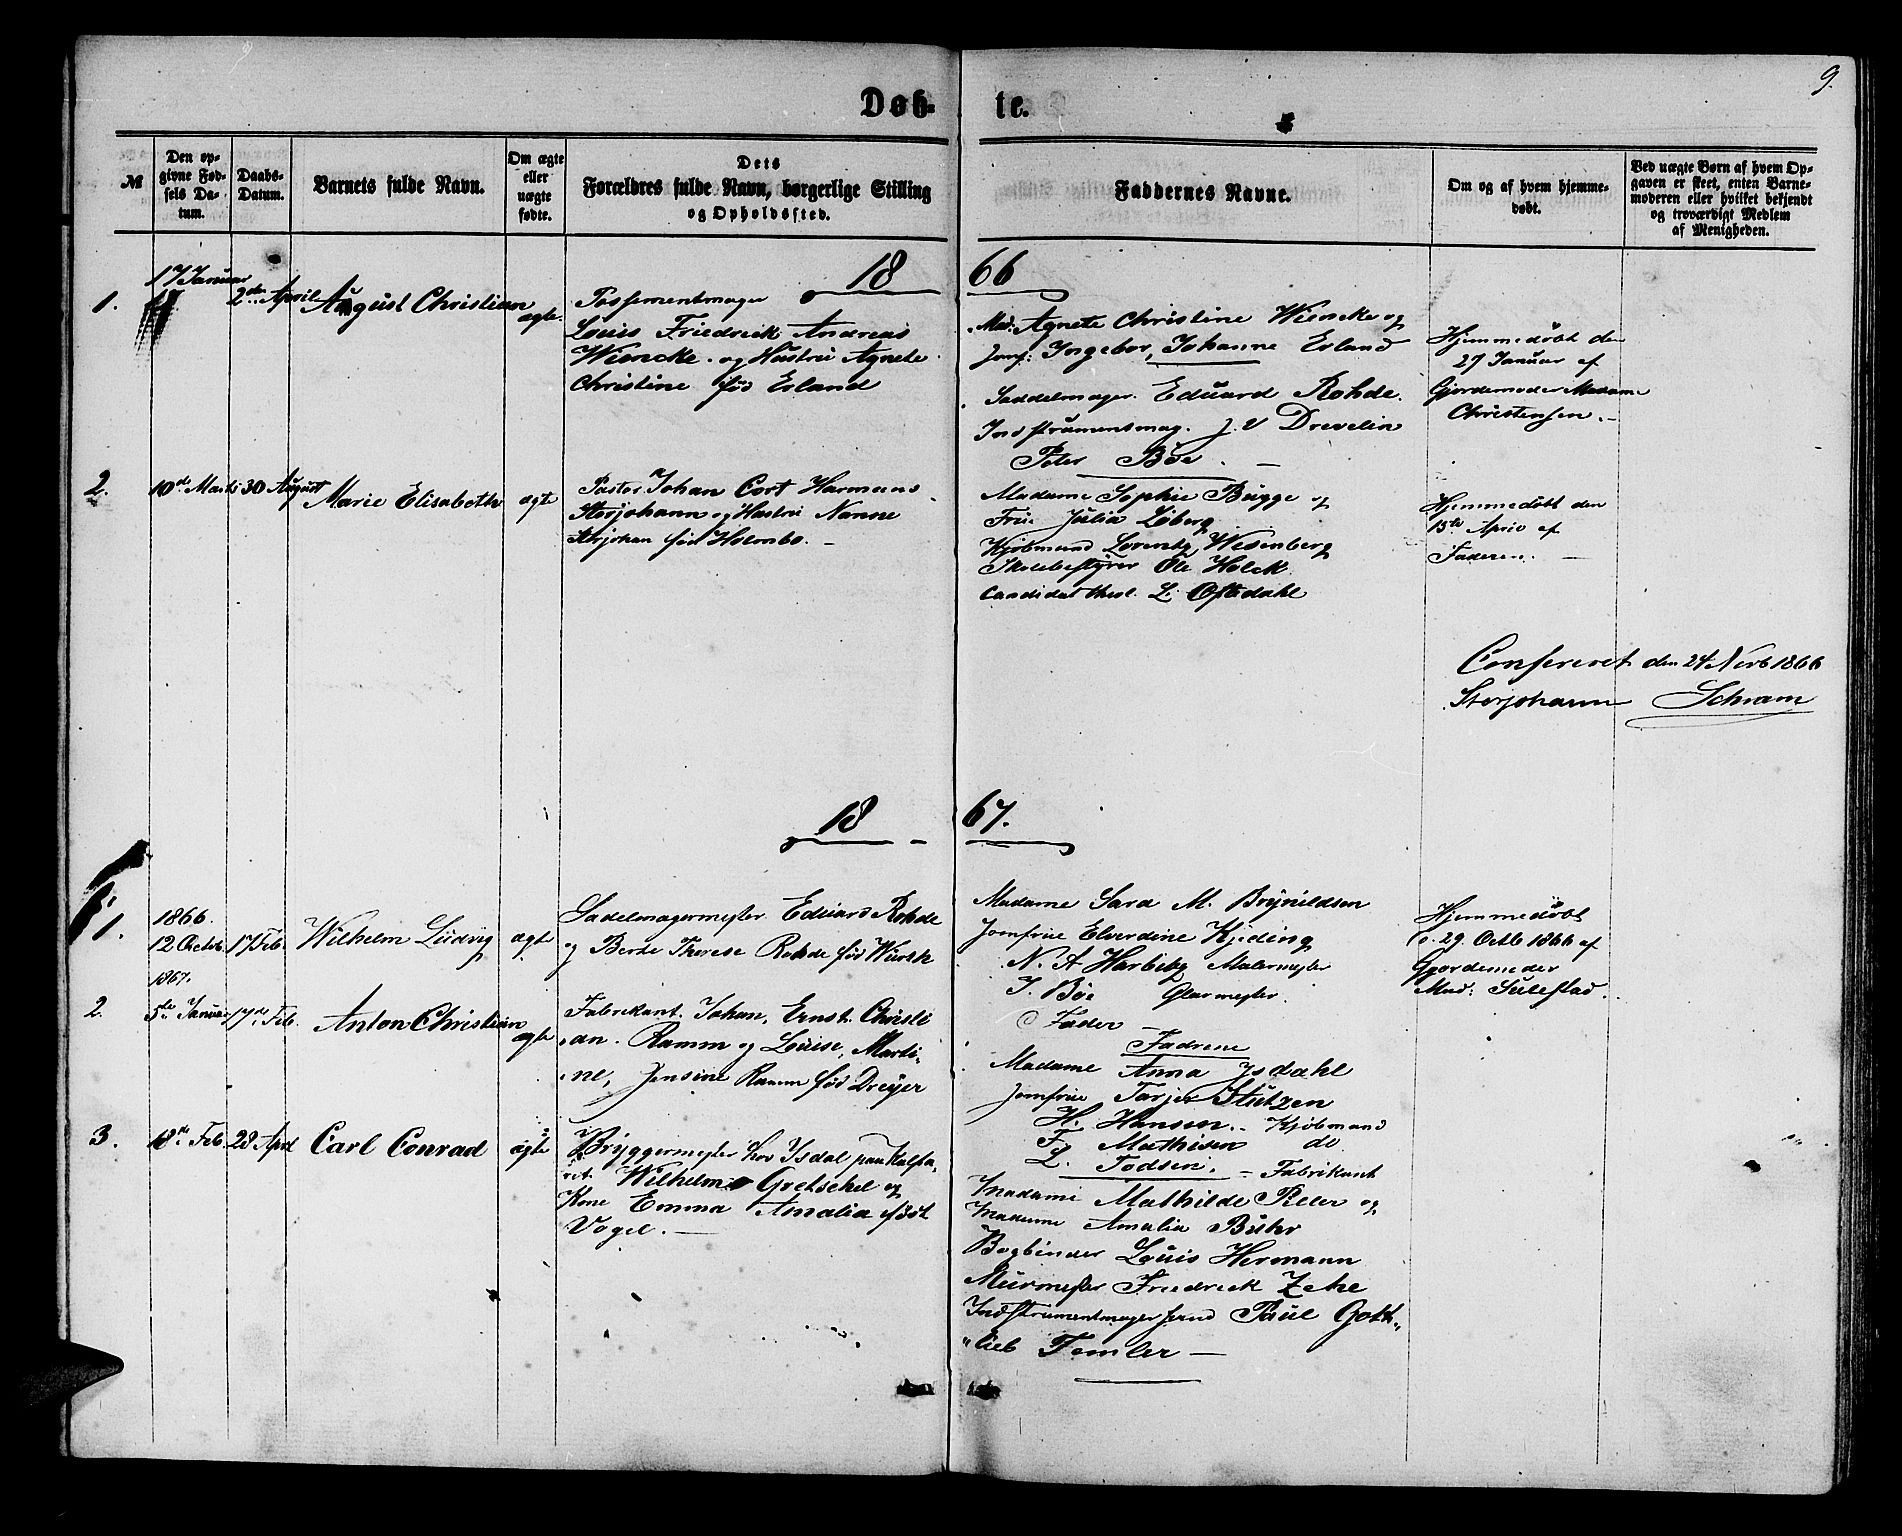 9.
Døb- te.
№
Den opgivne Fødsels Datum.
Daabs-Datum.
Barnets fulde Navn.
Om ægte eller uægte fødte.
Dets Forældres fulde Navn, borgerlige Stilling og Opholdssted.
Faddernes Navne.
Om og af hvem hjemmedøbt.
Ved uægte Børn af hvem Opgaven er skeet, enten Barnemoderen eller hvilket bekjendt og troværdigt Medlem af Menigheden.
18 66
1.
17 Januar
2den April
August Christian
ægte.
Possementmager
Louis Friedreck Andreas
Wiencke. og Hustru Agnete
Christine fød Erland
Mad: Agnete Christine Wiencke og
Jomf: Ingebor, Johanne Erland
Saddelmager. Eduard Rohde.
Indstrumentmag. J. V Drevelin
Peter Bøe. —
Hjemmedøbt den
27 Januar af
Gjordemoder Madame
Christensen. —
2.
10de Marts
30 August
Marie Elisabeth
ægte
Pastor Johan Cort Harmens
Storjohann og Hustru Nanne
Storjohan fød Holmbo. —
Madame Sophie Bugge og
Frue Julia Løberg
Kjøbmand Lorentz Wesenberg
Skolebestyrer Ole Holck
Candidat theol. L. Oftedahl
Hjemmedøbt den
15de April af
Faderen. —
Confereret den 24 Novb 1866
Storjohann Schram
18 67.
1.
1866.
12 Octob.
17 Feb.
Wilhelm Ludvig
ægte
Sadelmagermester Eduard Rohde
og Berte Therese Rohde fød Wiersk
Madame Sara M. Brynildsen
Jomfrue Elverdine Kjeding
N. A Harbitz Malermester
J. Bøe Glarmester.
Fader —
Hjemmedøbt
d. 29. Octb 1866 af
Gjordemoder
Mad: Sulestad.
2.
1867.
5te Januar
17de Feb.
Anton Christian
ægte
Fabrikant. Johan, Ernst. Christi
an. Ramm og Louise, Marti-
ne, Jensine Ramm fød Dreyer
Fadrene
Madame Anna Isdahl
Jomfrue Torjer Stutzen
H. Hansen. Kjøbmand
F. Mathisen do
L. Todsen. — Fabrikant
3.
18de Feb.
28 April
Carl Conrad
ægte
Bryggermester hos Isdal paa Kalfa-
ret. Wilhelm Gretschel og
Kone Emma Amalia født
Vogel. —
Madame Mathilde Peter og
Madame Amalia Buhr
Bogbinder Louis Hermann
Murmester Friedreck Zehe
Indstrumentmagersvend Paul Gott-
lieb Temler —